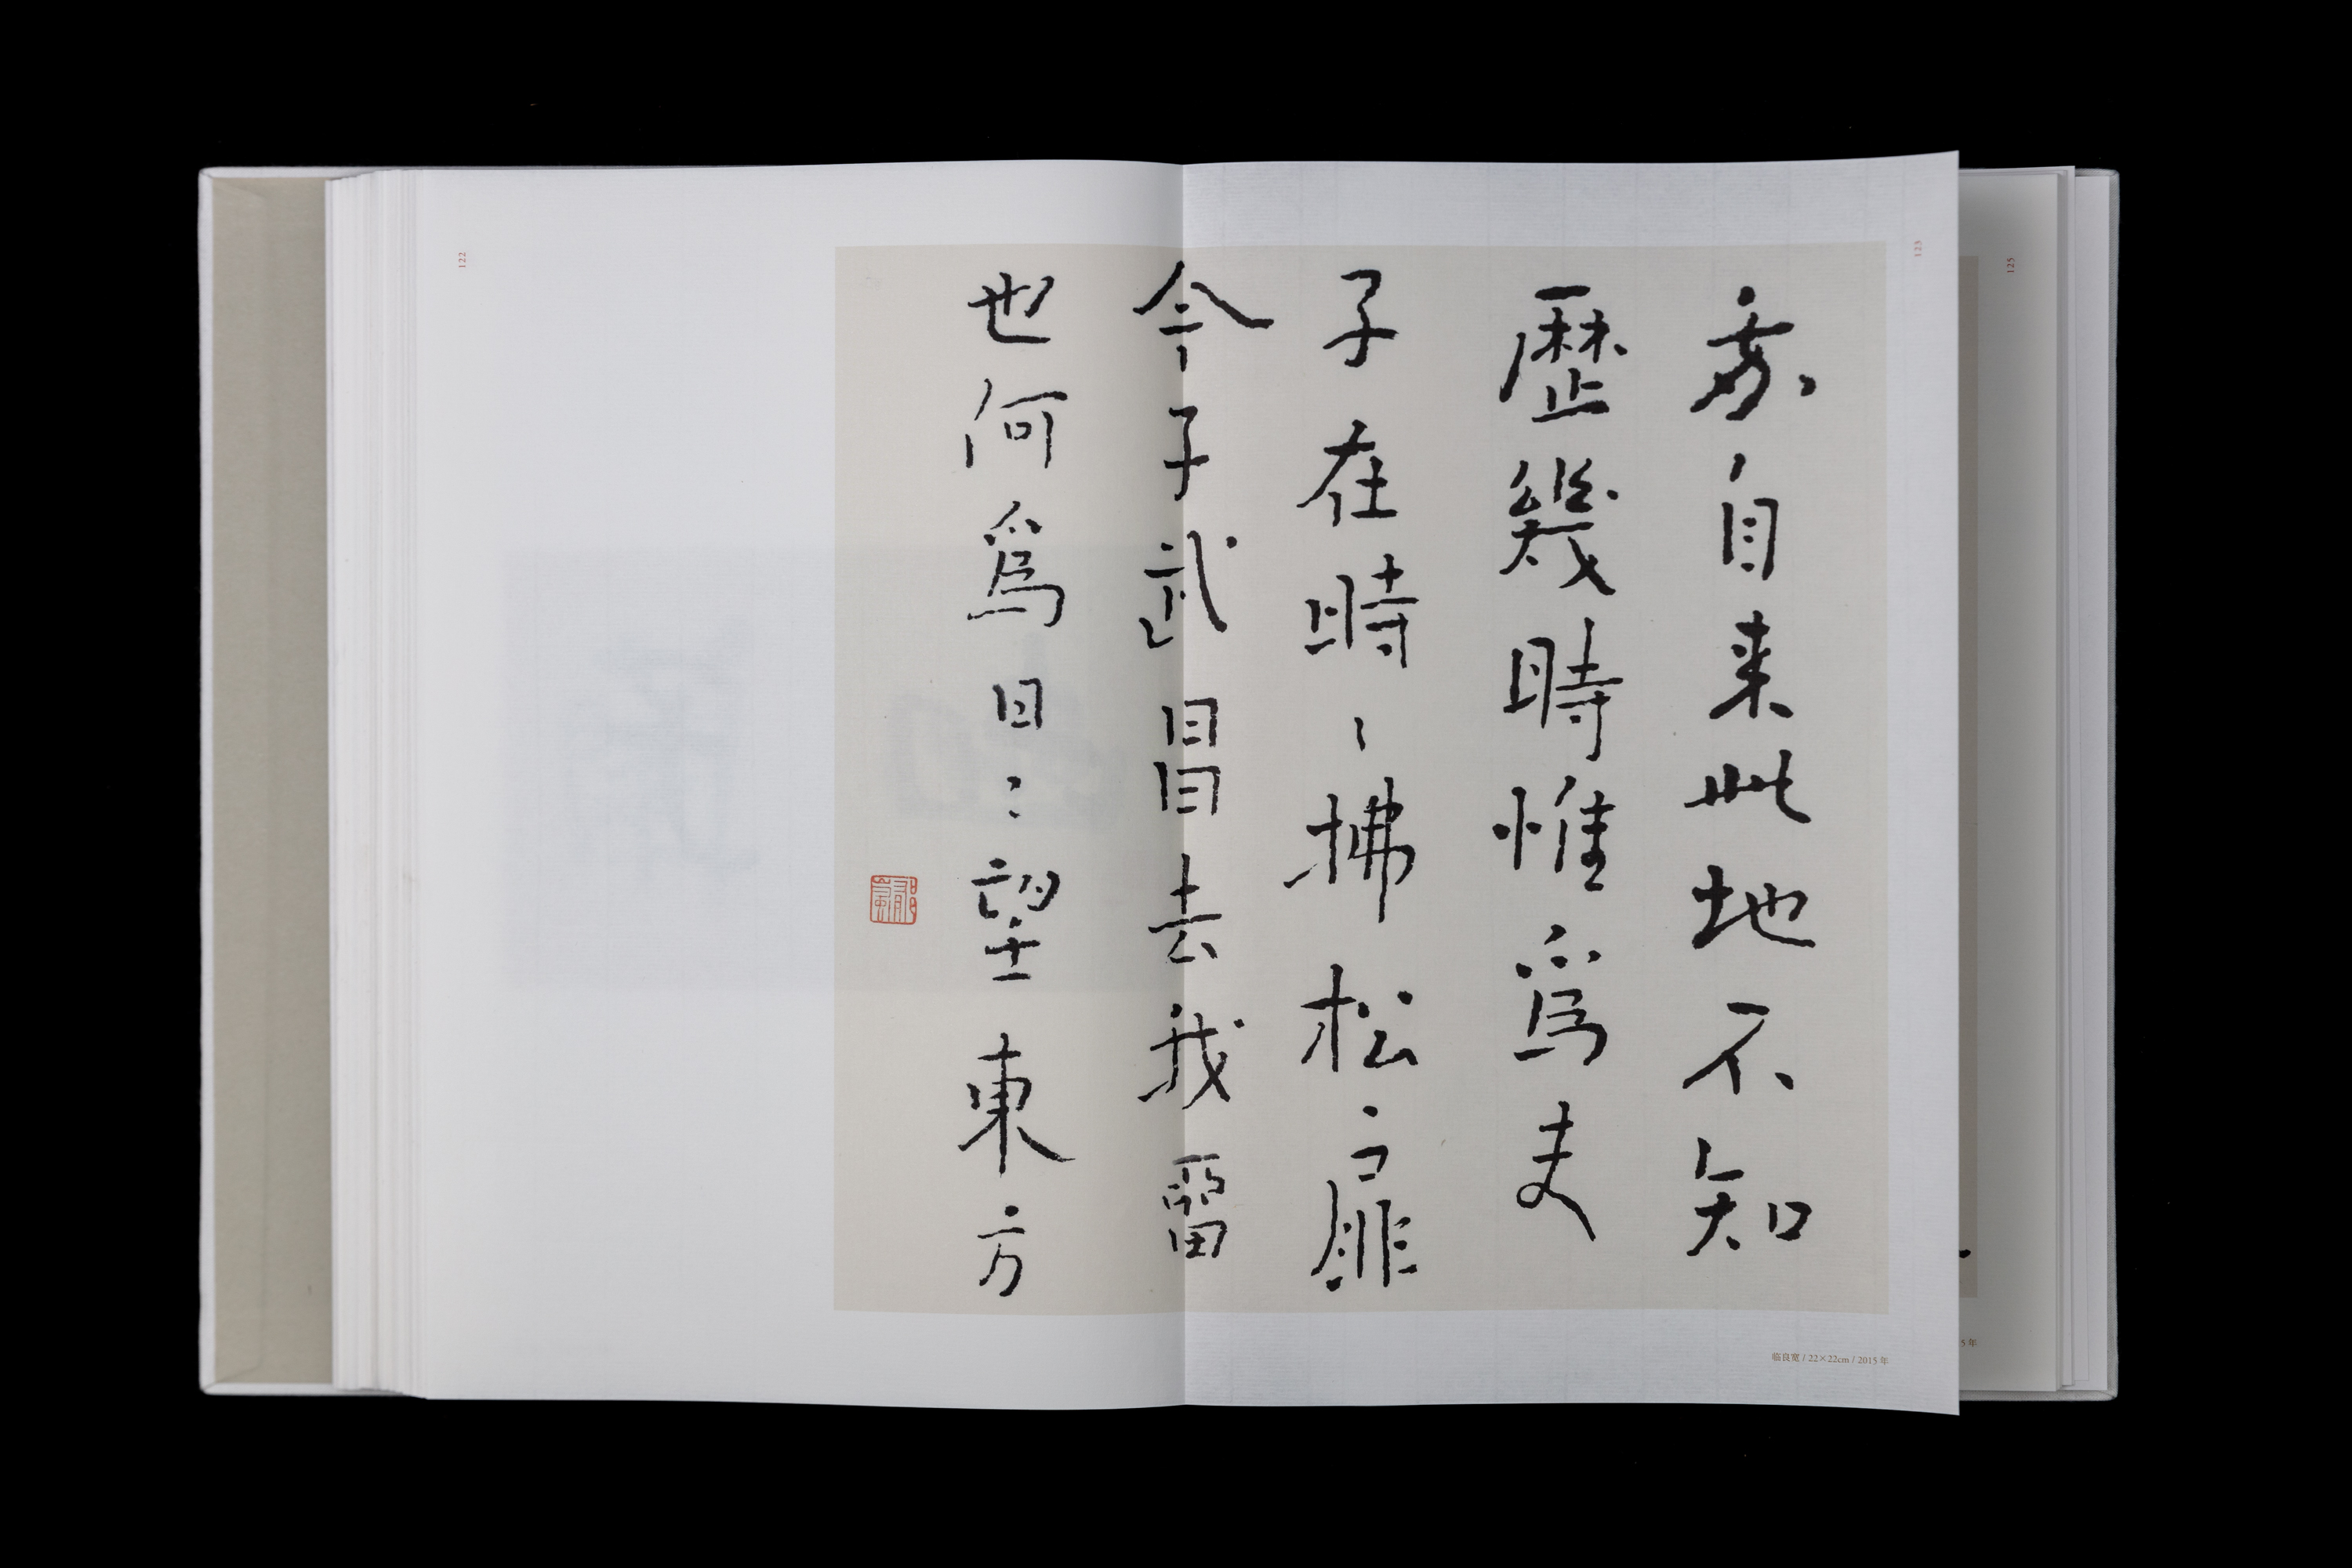 自来此地不知
歷幾時惟爲夫
子在時々拂松扉
今子武昌去我留
也何爲日々望東方
临良宽 / 22×22cm / 2015 年
122
123
125
5 年